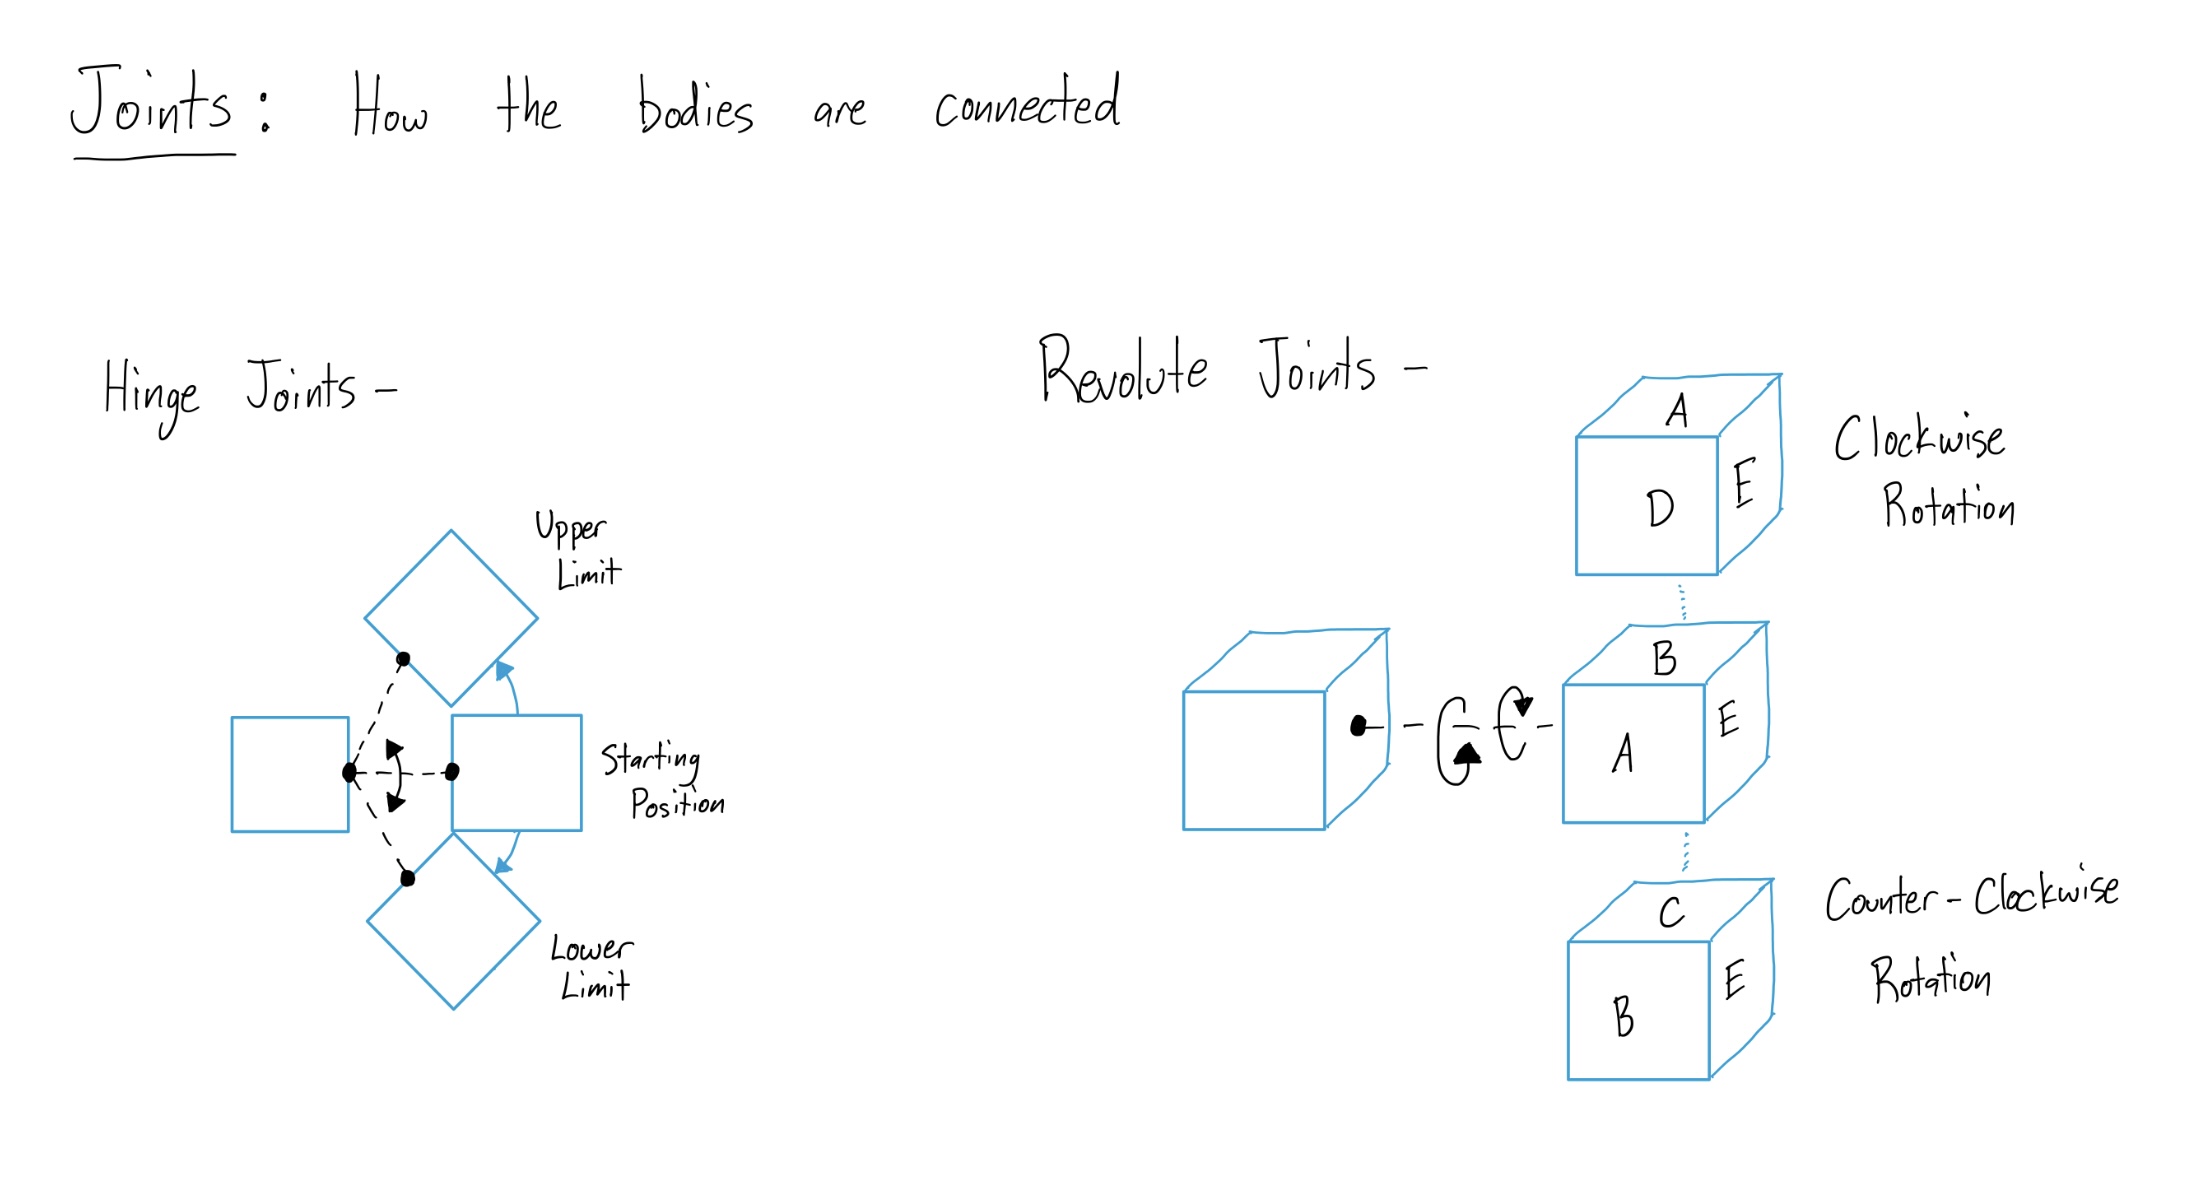 Joints: How the bodies are connected
Hinge Joints -
Upper
Limit
Starting
Position
Lower
Limit
Revolute Joints -
A
D
E
Clockwise
Rotation
B
A
E
C
B
E
Counter-Clockwise
Rotation